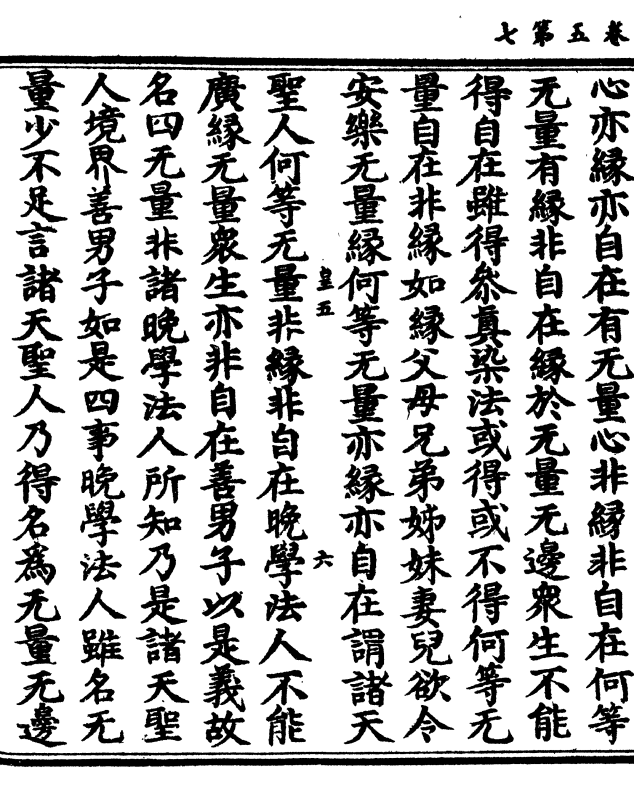 卷五第七
心亦緣亦自在有无量心非緣非自在何等
无量有緣非自在緣於无量无邊衆生不能
得自在雖得叅眞染法或得或不得何等无
量自在非緣如緣父母兄弟姊妹妻兒欲令
安樂无量緣何等无量亦緣亦自在謂諸天
皇五
六
聖人何等无量非緣非自在晚學法人不能
廣緣无量衆生亦非自在善男子以是義故
名四无量非諸晚學法人所知乃是諸天聖
人境界善男子如是四事晚學法人雖名无
量少不足言諸天聖人乃得名爲无量无邊